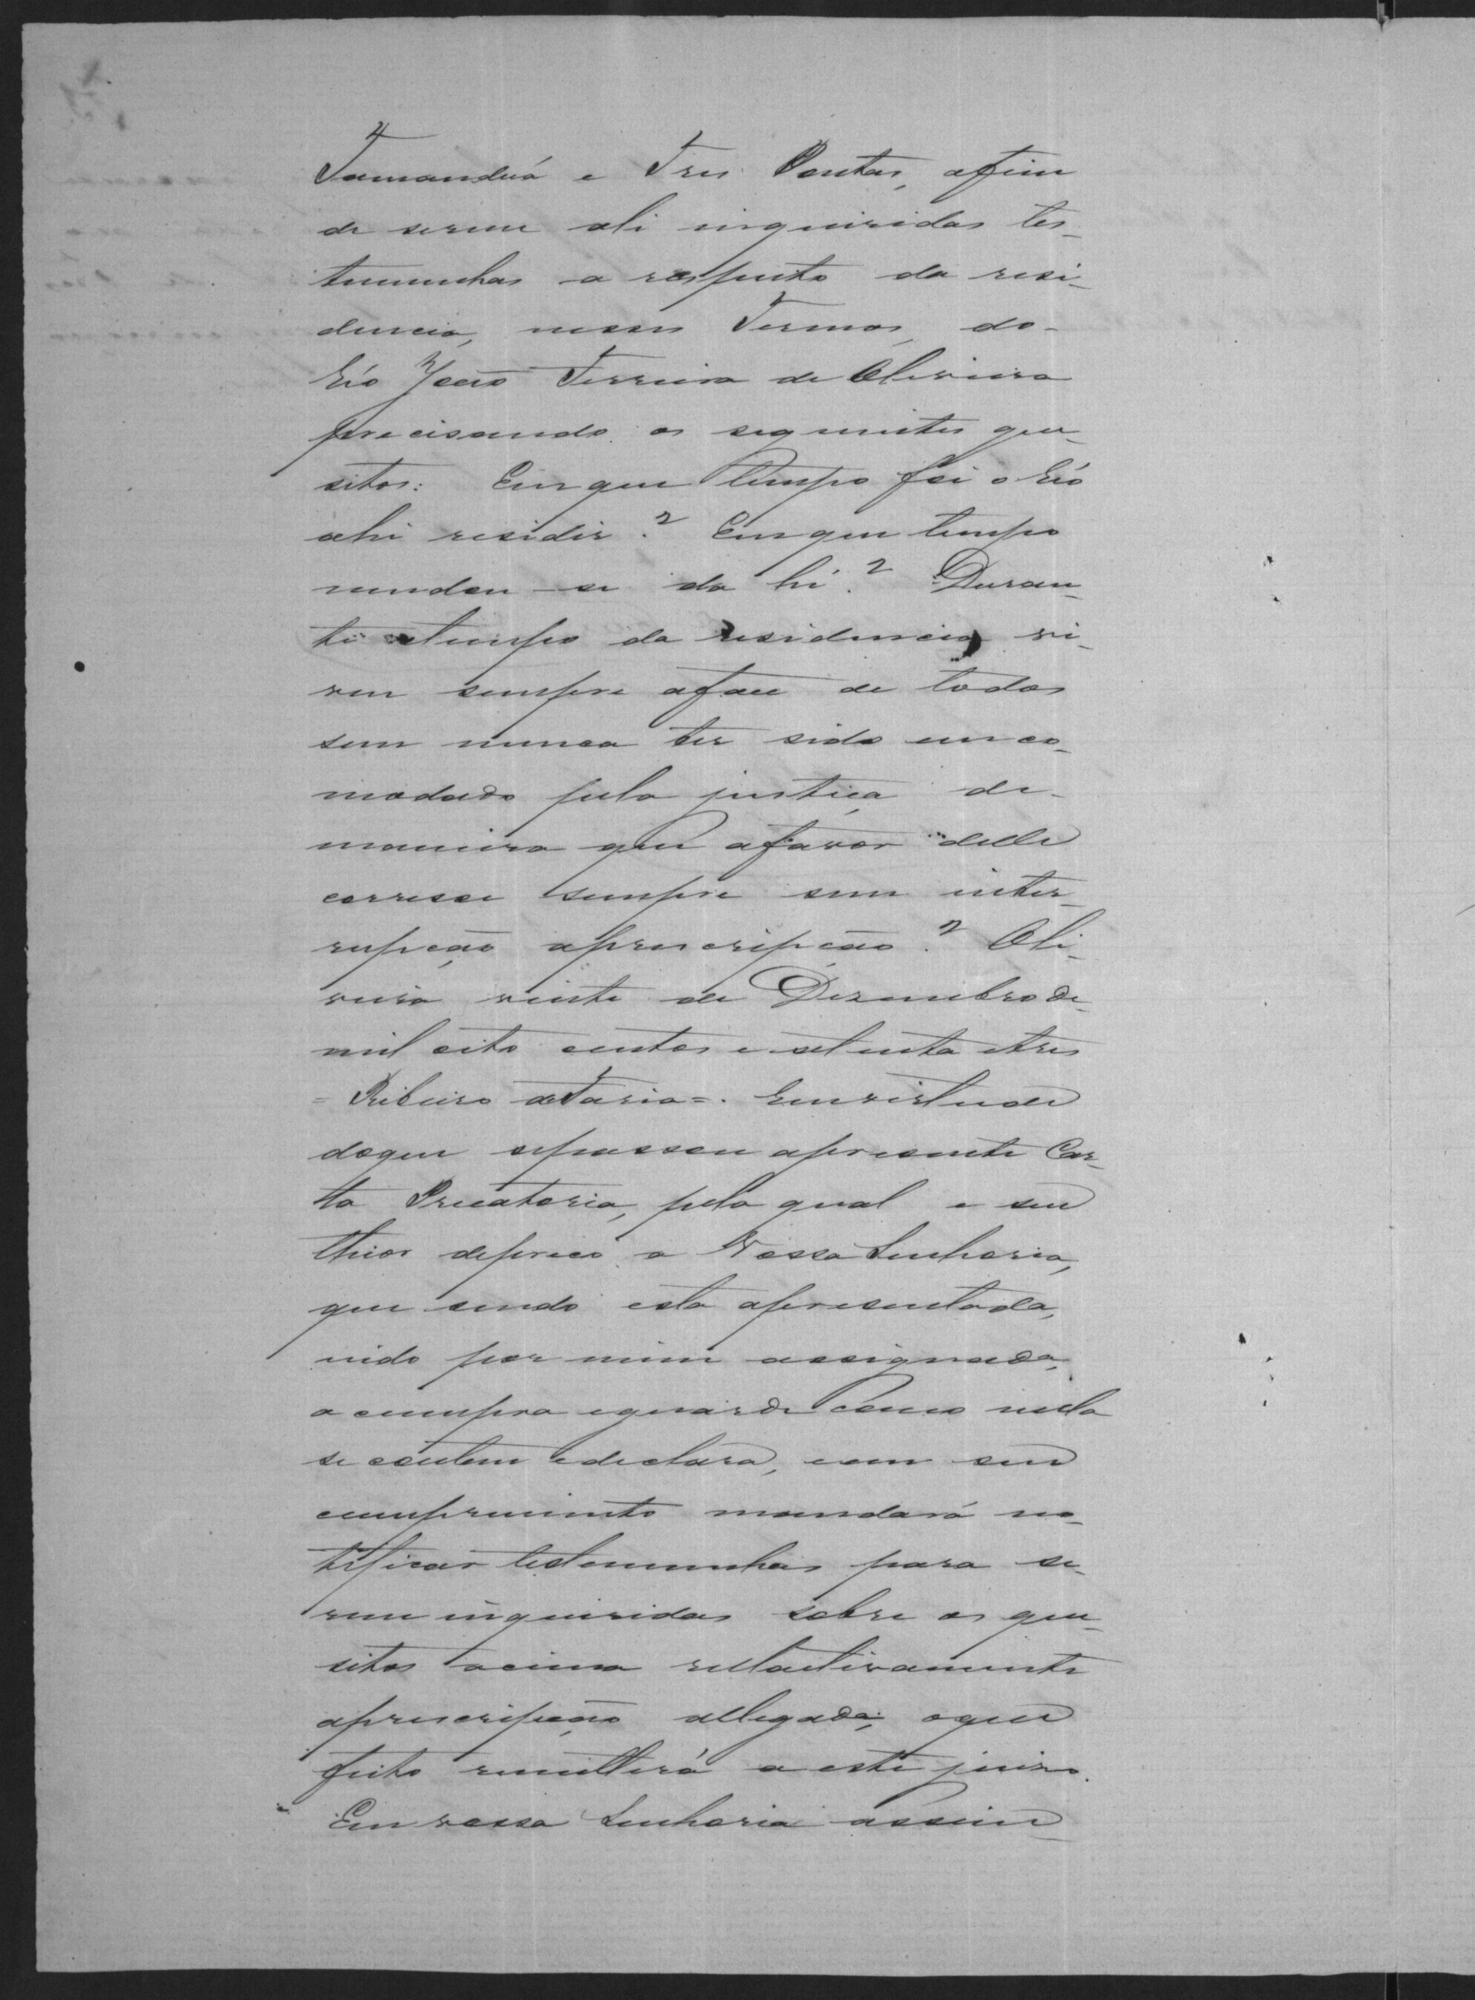 Tamanduá e Tres Pontas, afim
de serem ali inqueiridas tes-
temunhas a respeito da resi-
dencia, nesses Termos, do
Réo João Ferreira de Oliveira
precisando os seguintes que-
sitos: Em que tempo foi o Réo
ahi residir? Em que tempo
mudou-se da hi? Duran-
te otempo da residencia vi-
veu sempre aface de todos
sem nunca ter sido enco-
modado pela justiça de
maneira que afavor delle
corresse sempre sem inter-
rupção aprescripção? Oli-
veira vinte de Dezembro de
mil oito centos e setenta etres
= Ribeiro de Faria =. Em virtude
doque sepassou apresente Car-
ta Precatoria, pela qual e seu
theor depreco a Vossa Senhoria,
que sendo esta apresentada,
indo por mim assignada,
a cumpra eguarde como nella
se contem edeclara, com seu
cumprimento mandará no-
tificar testemunhas para se-
rem inqueiridas sobre os que-
sitos acima rellactivamente
aprescripção allegada, oque
feito remetterá a este juizo.
Em vossa Senhoria assim